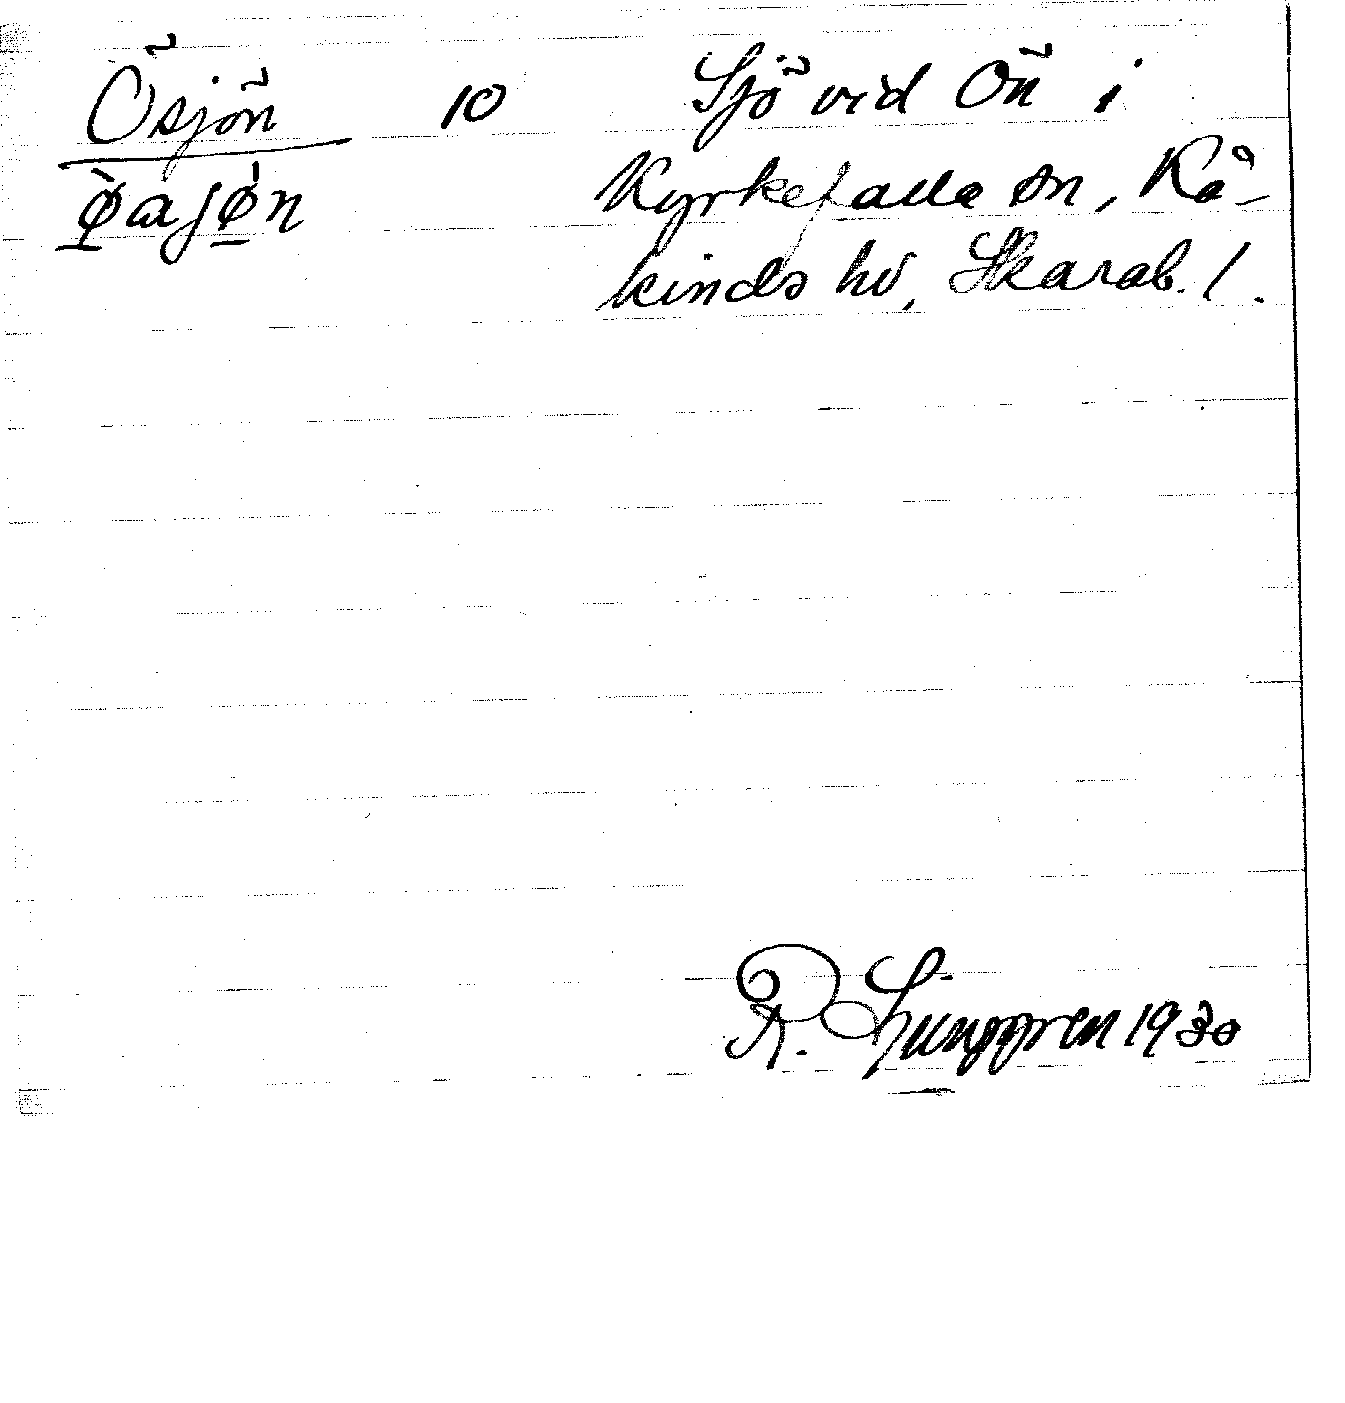 Ösjön 10 Sjö vid Ön i
Kyrkefalla sn, Kå-
kinds hd, Skarab. l.
R. Ljunggren 1930